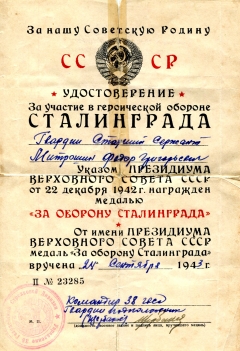 За нашу Советскую Родину
СС СР
УДОСТОВЕРЕНИЕ
За участие в героической обороне
СТАЛИНГРАДА
Гвардии Старший Сержант
Митрошин Федор Григорьевич
Указом ПРЕЗИДИУМА
ВЕРХОВНОГО СОВЕТА СССР
от 22 декабря 1942 г. награжден
медалью
«ЗА ОБОРОНУ СТАЛИНГРАДА»
От имени ПРЕЗИДИУМА
ВЕРХОВНОГО СОВЕТА СССР
медаль «За оборону Сталинграда»
вручена Сентября 1943 г.
П № 23285
Командир 38
Гвардии
М. П.